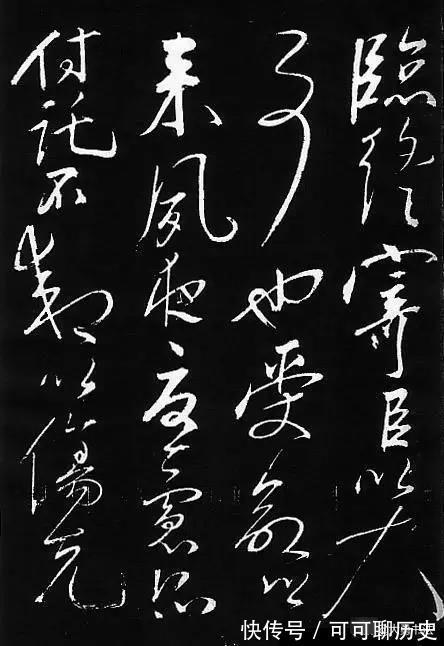 臨終寄臣以大
事也受命以
来夙夜憂慮恐
付託不效以傷先
快传号 / 可可聊历史